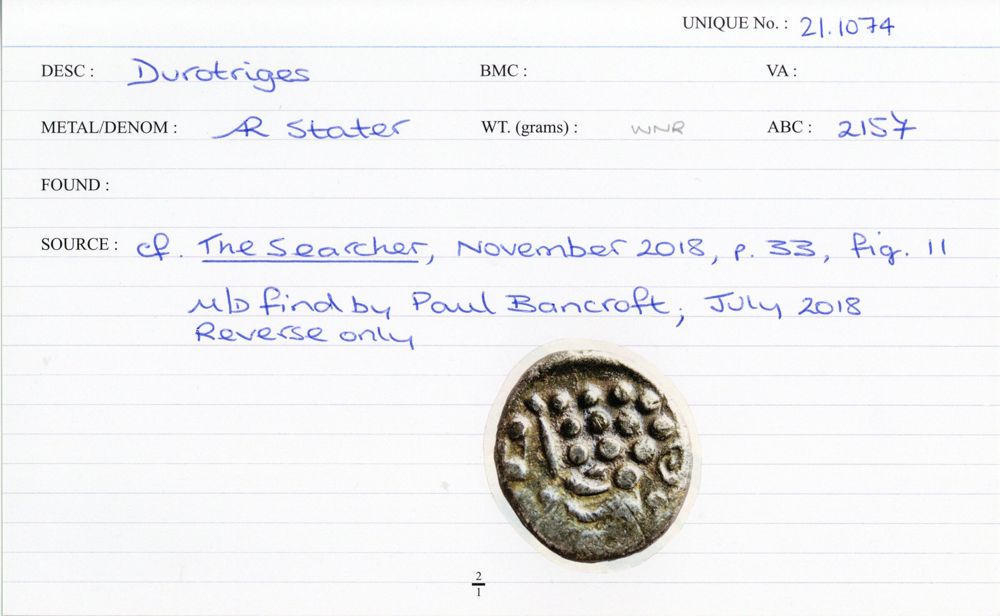 UNIQUE No. : 21.1074
DESC : Durotriges BMC : VA :
METAL/DENOM : AR Stater WT. (grams) : WNR ABC : 2157
FOUND :
SOURCE : cf. The Searcher, November 2018, p. 33, fig. 11
M/D find by Paul Bancroft, July 2018
Reverse only
2
1